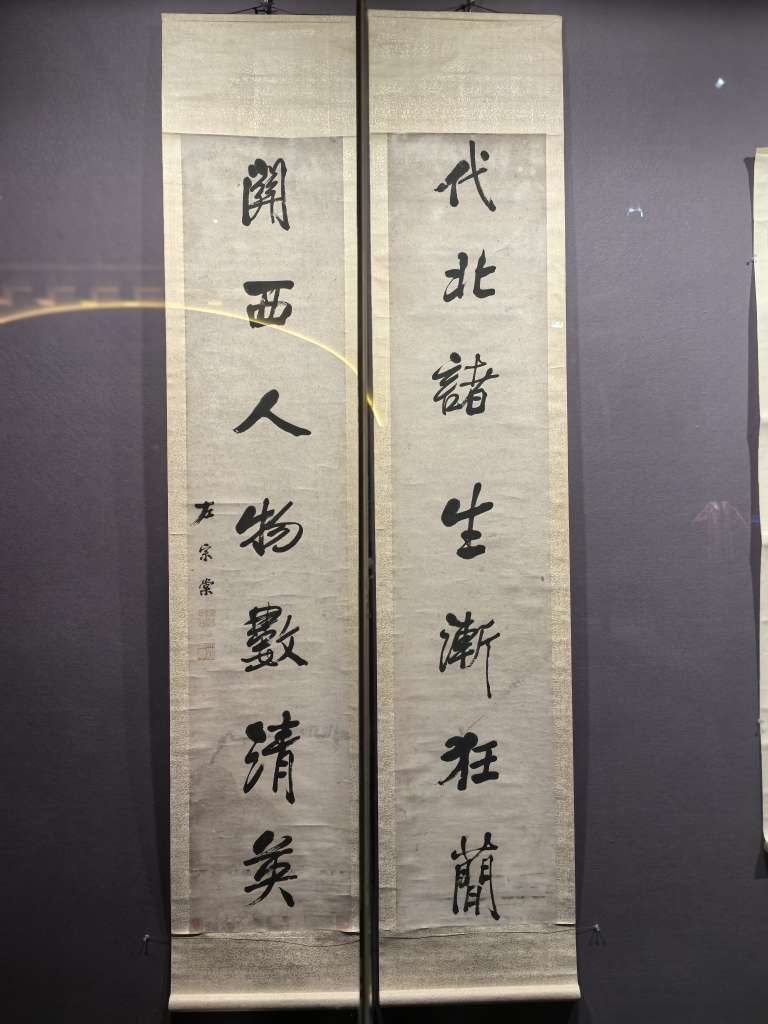 代北諸生漸狂簡
關西人物數清英
左宗棠